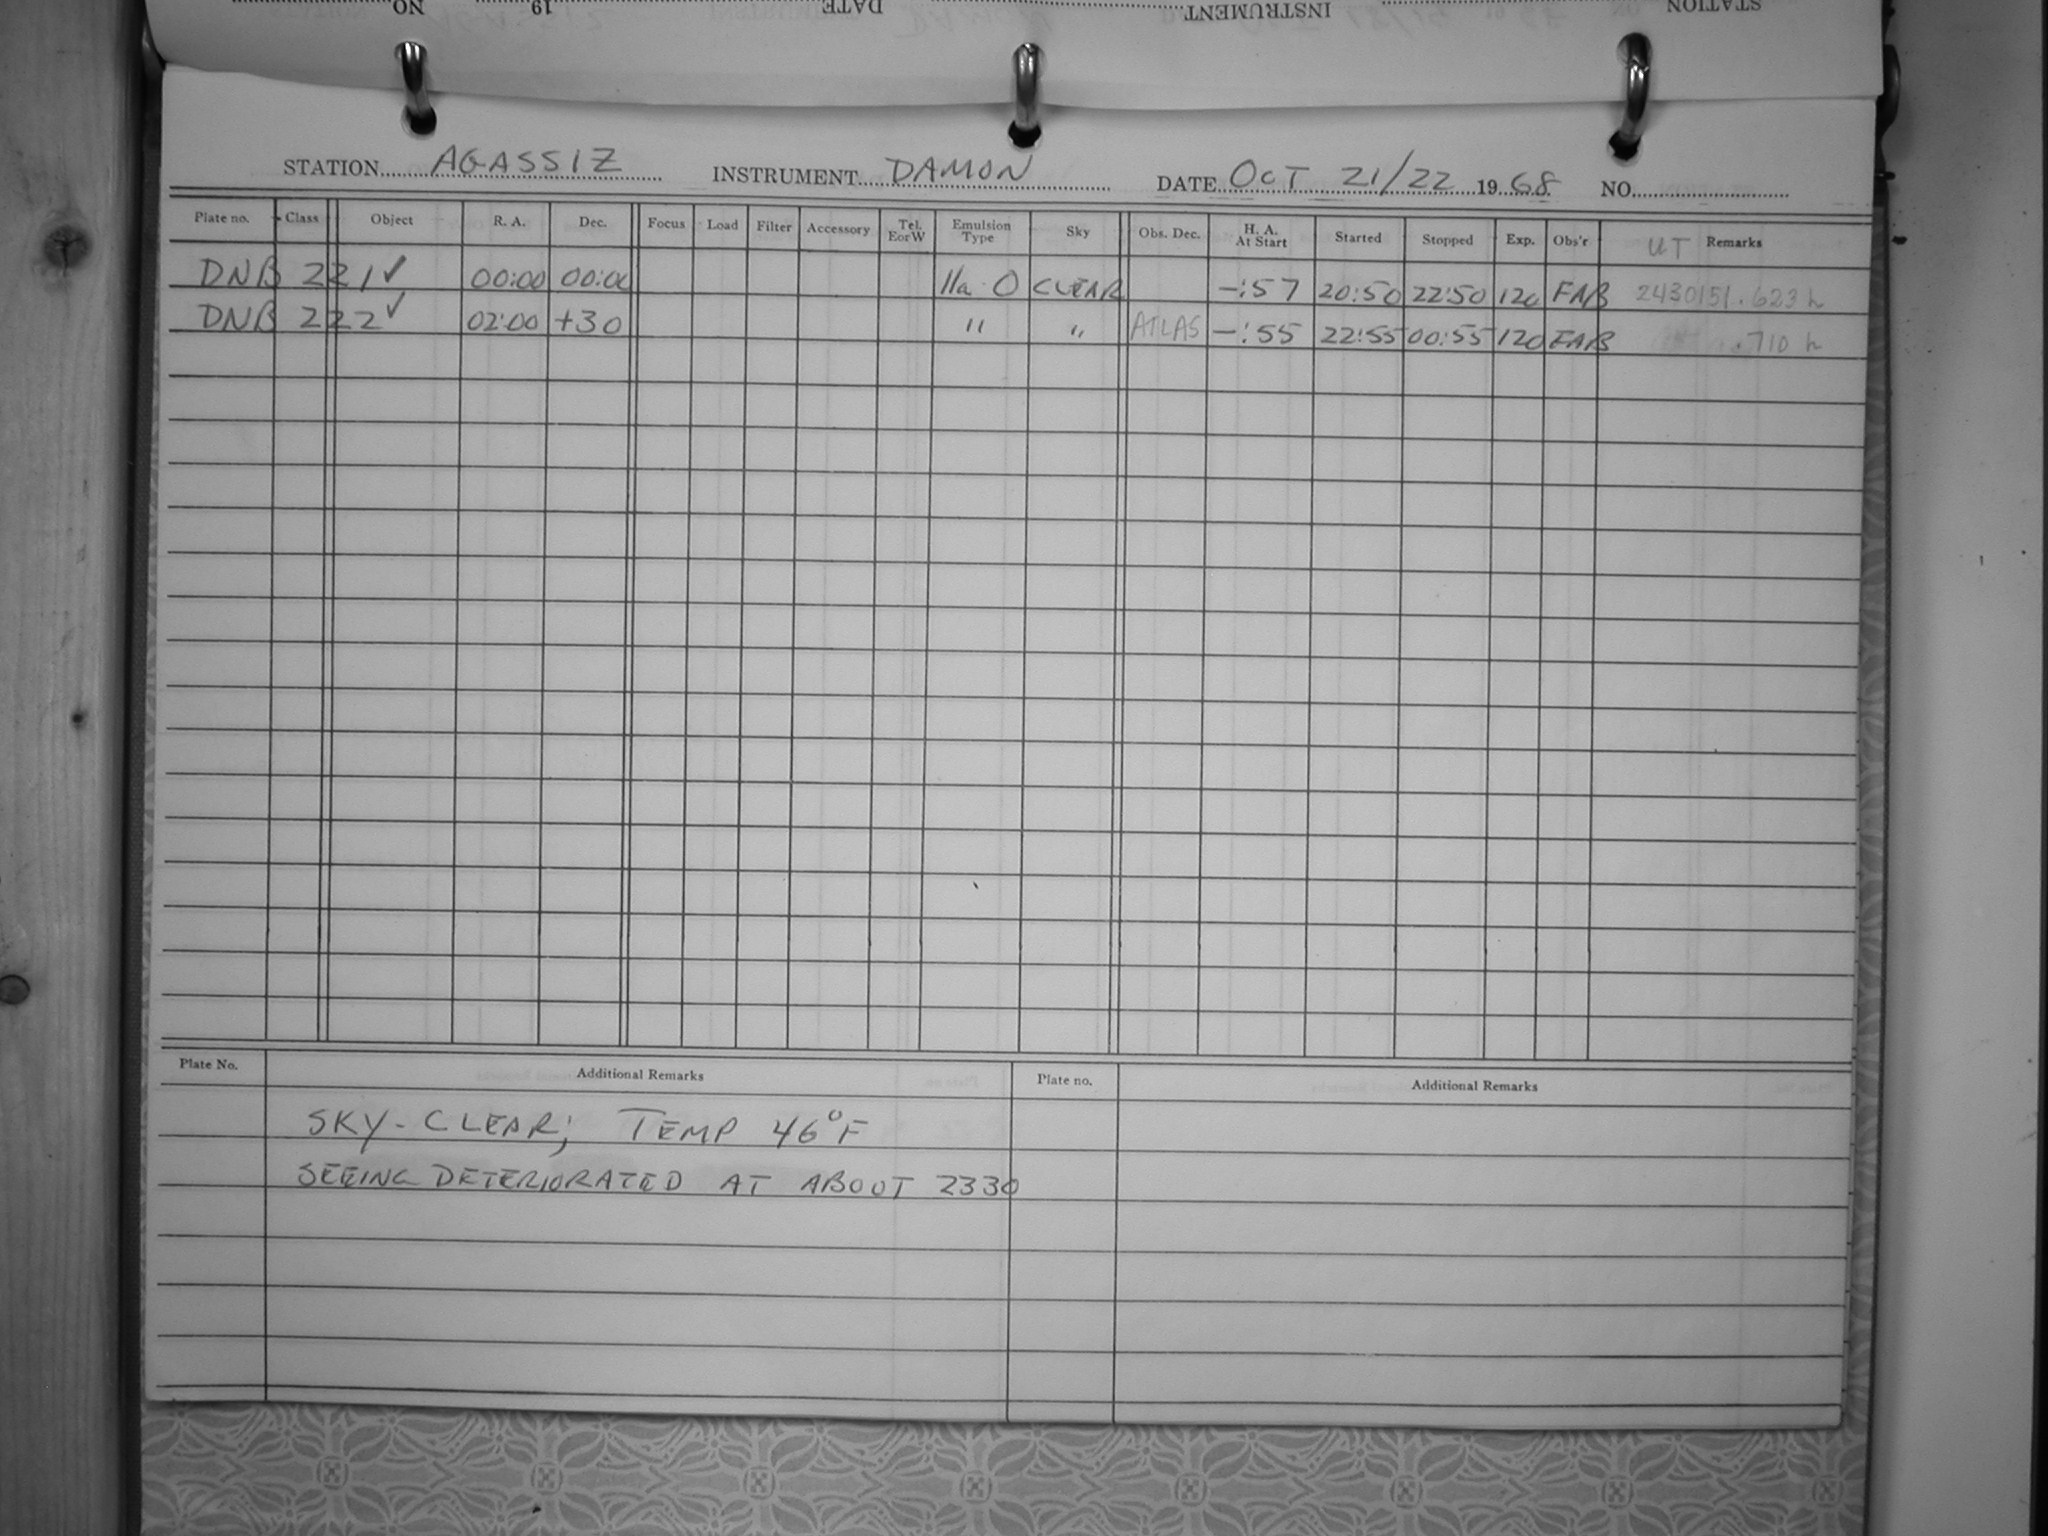 NO 19 DATE INSTRUMENT STATION
STATION AGASSIZ INSTRUMENT DAMON DATE OCT 21/22 1968 NO.
Plate no. Class Object R. A. Dec. Focus Load Filter Accessory Tel. E or W Emulsion Type Sky Obs. Dec. H. A. At Start Started Stopped Exp. Obs'r UT Remarks
DNB 221✓ 00:00 00:00 IIa-O CLEAR -:57 20:50 22:50 120 FAB 2430151.623 h
DNB 222✓ 02:00 +30 " " ATLAS -:55 22:55 00:55 120 FAB .710 h
Plate No. Additional Remarks Plate no. Additional Remarks
SKY - CLEAR; TEMP 46°F
SEEING DETERIORATED AT ABOUT 2330